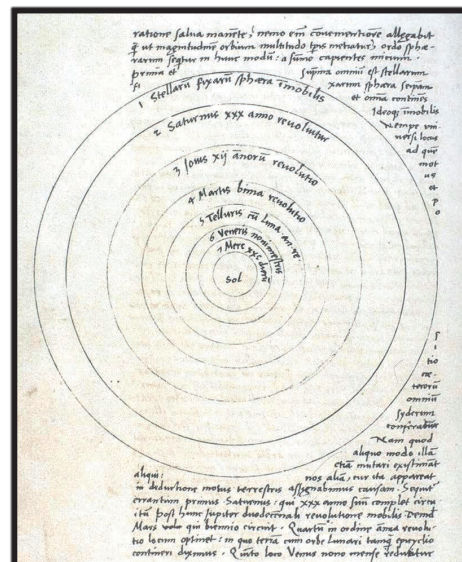 ratione salua manente, nemo em conuementiore allegabit
q̃ ut magnitudinē orbium multitudo tp̃is metiatur, ordo sphæ-
rarum sequitur in hunc modū: a sūmo capientes initium.
prima et suprema omniū est stellarum
fi xarum sphæra seipsam
et omnia continēs
Ideoq; īmobilis
Nempe uni
uersi locus
ad quē
mot
us
et
p
o
1 Stellarū fixarū sphæra īmobilis
2 Saturnus xxx anno reuoluitur
3 Iouis xij annorū reuolutio
4 Martis bima reuolutio
5 Telluris cū luna an. re.
6 Veneris nonimestris
7 Merc xxc dierū
Sol
s
i
tio
cæ-
terorū
omniū
syderum
conferatur
Nam quod
aliquo modo illā
etiā mutari existimāt
aliqui: nos aliā, cur ita appareat
in deductione motus terrestris assignabimus causam. Sequitur
errantium primus Saturnus: qui xxx anno suū complet circu
itū post hunc Iupiter duodecennali reuolutione mobilis Deinde
Mars uolo qui biennio circuit. Quartū in ordine annua reuolu-
tio locum optinet: in quo terrā cum orbe Lunari tanq̃ epicyclio
contineri diximus. Quinto loco Venus nono mense reducitur